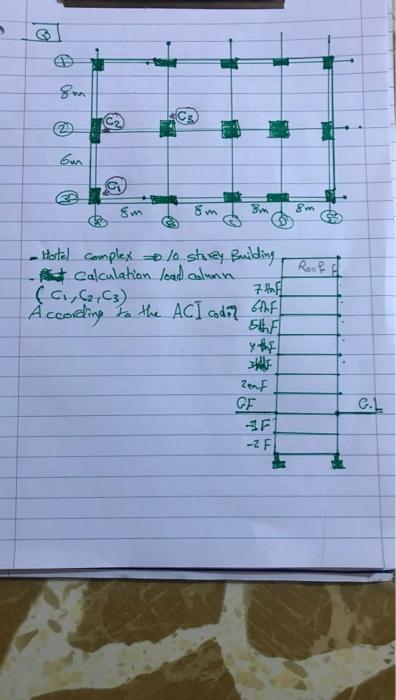 Q
1
8m
2
C2
C3
6m
3
C1
8m 8m 8m 8m
A B C D E
- Hotel complex ⇒ 10 storey Building
- Calculation load column
(C1, C2, C3)
According to the ACI code?
Roof F
7thF
6thF
5thF
4thF
2nF
GF G.L
-1F
-2F